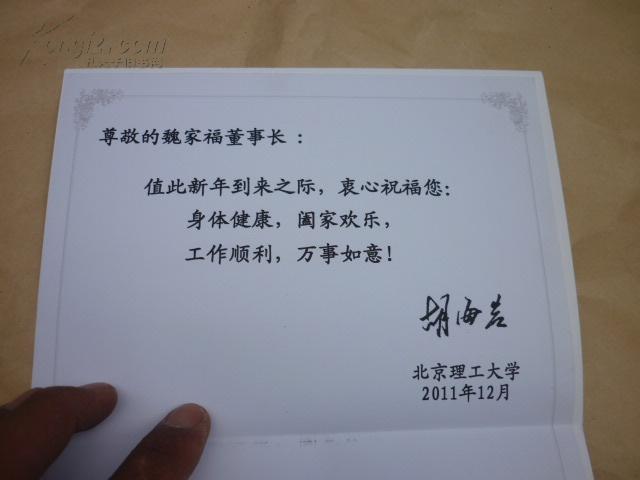 尊敬的魏家福董事长：
值此新年到来之际，衷心祝福您：
身体健康，阖家欢乐，
工作顺利，万事如意！
胡海岩
北京理工大学
2011年12月